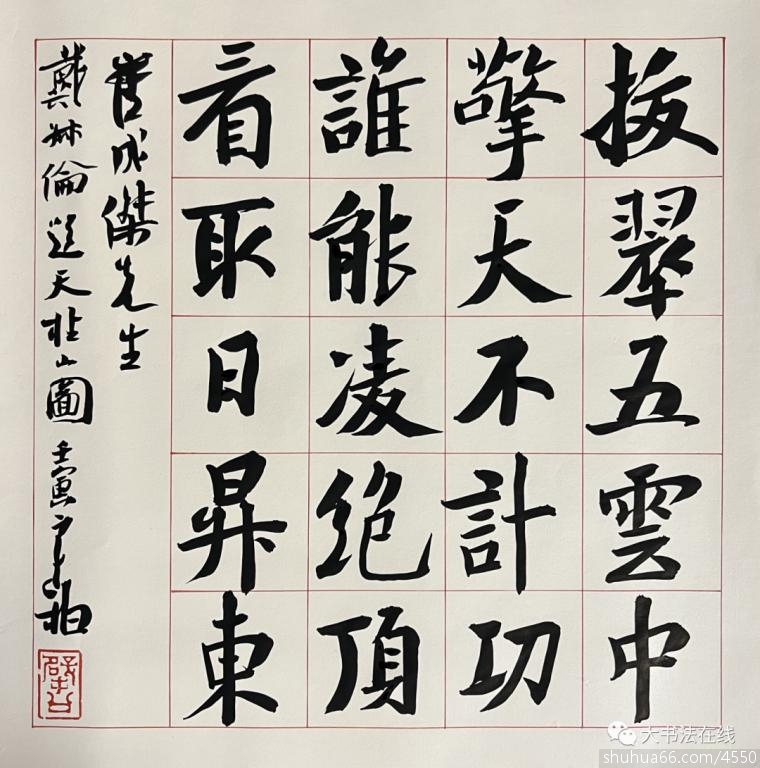 拔翠五雲中
擎天不計功
誰能凌絕頂
看取日昇東
成傑先生
戴叔倫題天柱山圖 壬寅
大书法在线
shuhua66.com/4550